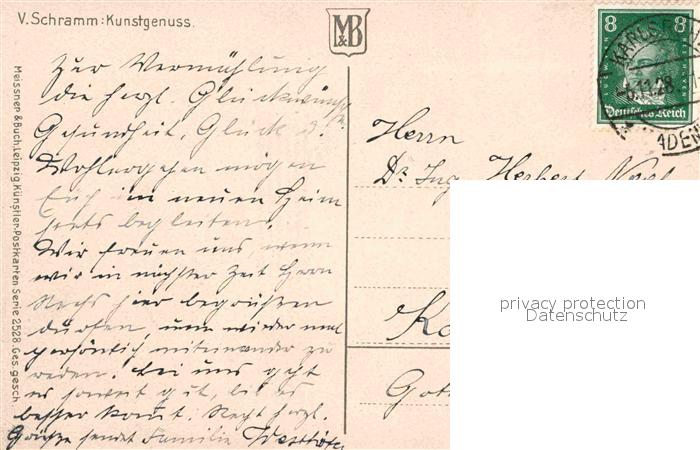 V. Schramm: Kunstgenuss.
M&B
Meissner & Buch, Leipzig, Künstler-Postkarten Serie 2528. Ges. gesch
8 8
Deutsches Reich
KARLSRUHE
.11.28
BADEN
Zur Vermählung
die herzl. Glückwünsche
Gesundheit, Glück u.
Wohlergehen mögen
Euch im neuen Heim
stets begleiten.
Wir freuen uns, wenn
wir in nächster Zeit Herrn
hier begrüßen
dürfen, um wieder mal
persönlich miteinander zu
reden. Bei uns geht
es soweit gut, bis es
besser kommt. Recht herzl.
Grüße sendet Familie
Herrn
Dr. Ing. Herbert
privacy protection
Datenschutz